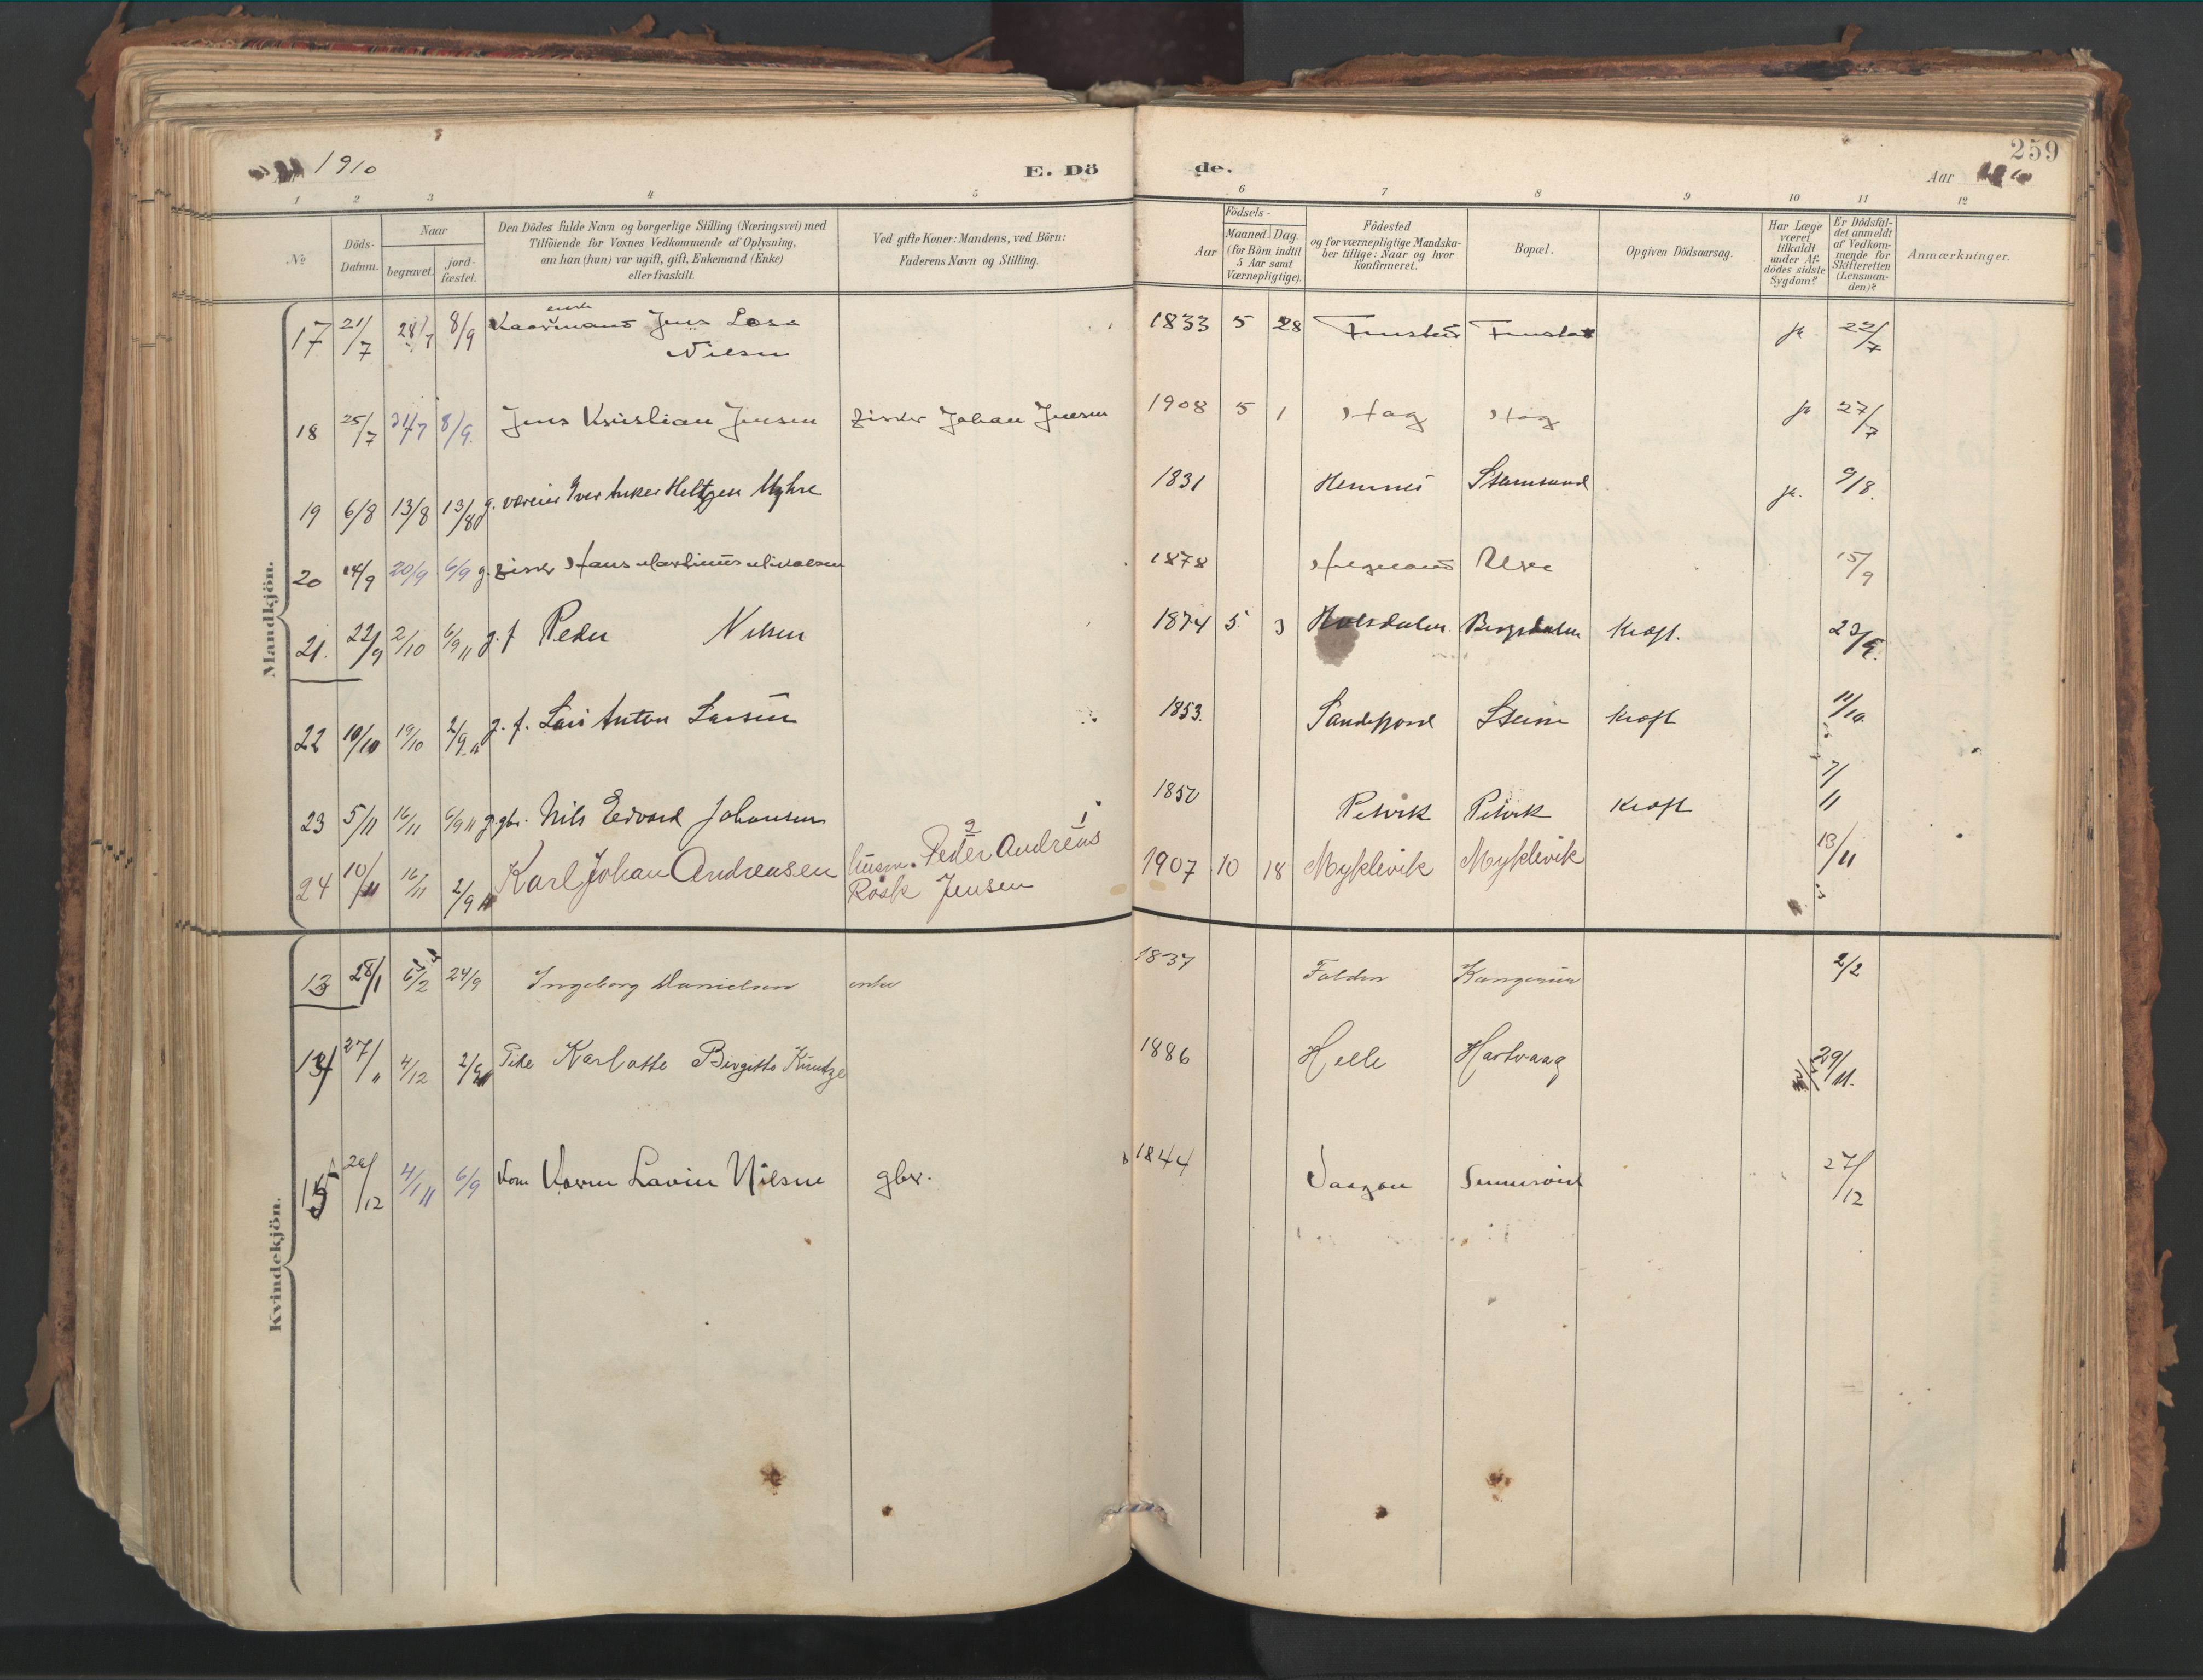 1910
E. Dö de.
259
Aar
1 2 3 4 5 6 7 8 9 10 11 12
No
Döds-
Datum.
Naar
begravet.
jord-
fæstet.
Den Dödes fulde Navn og borgerlige Stilling (Næringsvei) med
Tilföiende for Voxnes Vedkommende af Oplysning,
om han (hun) var ugift, gift, Enkemand (Enke)
eller fraskilt.
Ved gifte Koner: Mandens, ved Börn:
Faderens Navn og Stilling.
Födsels-
Aar
Maaned Dag
(for Börn indtil
5 Aar samt
Værnepligtige).
Födested
og for værnepligtige Mandska-
ber tillige: Naar og hvor
konfirmeret.
Bopæl.
Opgiven Dödsaarsag.
Har Læge
været
tilkaldt
under Af-
dödes sidste
Sygdom?
Er Dödsfal-
det anmeldt
af Vedkom-
mende for
Skifteretten
(Lensman-
den)?
Anmærkninger.
Mandkjön.
17 21/7 28/7 8/9 Jens Nilsen 1833 5 28 ja 22/7
18 25/7 31/7 8/9 Jens Kristian Jensen fisker Johan Jensen 1908 5 1 Hag Hag ja 27/7
19 6/8 13/8 13/8 g. væreier Iver Anker Heltzen Myhre 1831 Hemnes Stamsund ja. 9/8.
20 14/9 20/9 6/9 g. fisker Hans Martinus 1878 Helgeland Ure 15/9
21. 22/9 2/10 6/9 11 g. f Peder Nilsen 1874 5 3 Bergsdalen Kræft. 23/9.
22 10/10 19/10 2/9 11 g. f. Lars Anton Larsen 1853. Sandefjord Steine Kræft 11/10
23 5/11 16/11 6/9 11 g. gbr. Nils Edvard Johansen Petvik Petvik Kræft 7/11
24 10/11 16/11 2/9 11 Karl Johan Andreasen husm. Peder Andreas
Rask Jensen 1907 10 18 Myklevik Myklevik 13/11
Kvindekjön.
13 28/1 6/2 24/9 Ingeborg Danielsen enke 1837 Folden 2/2
14 27/11 4/12 2/9 11 Pike Karlotte Birgitte Küntze 1886 Helle Hartvaag 29/11.
15 4/1 11 6/9 Kone Karen Lavine Nilsen gbr. 1844 Vaagan 27/12